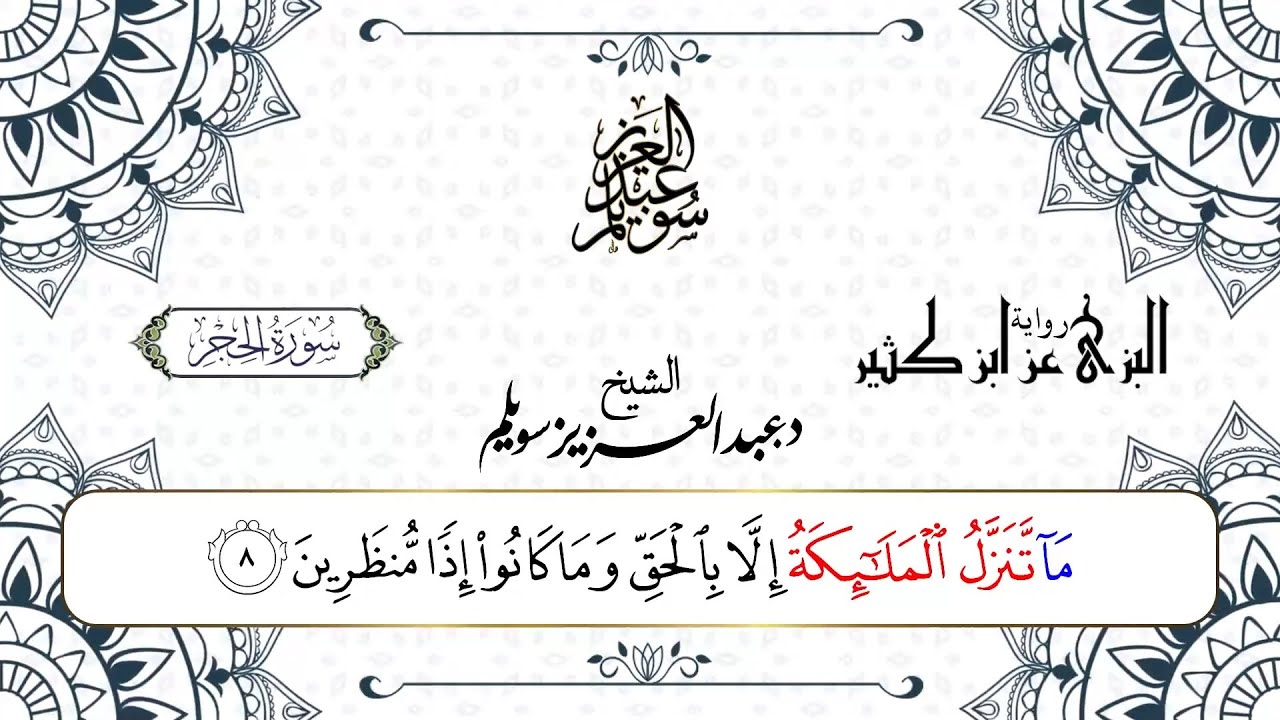 عبد العزيز سويلم
سُورَةُ الحِجْرِ
رواية
البزي عن ابن كثير
الشيخ
د عبد العزيز سويلم
مَآ تَّنَزَّلُ ٱلۡمَلَٰٓئِكَةُ إِلَّا بِٱلۡحَقِّ وَمَا كَانُوٓاْ إِذٗا مُّنظَرِينَ ٨